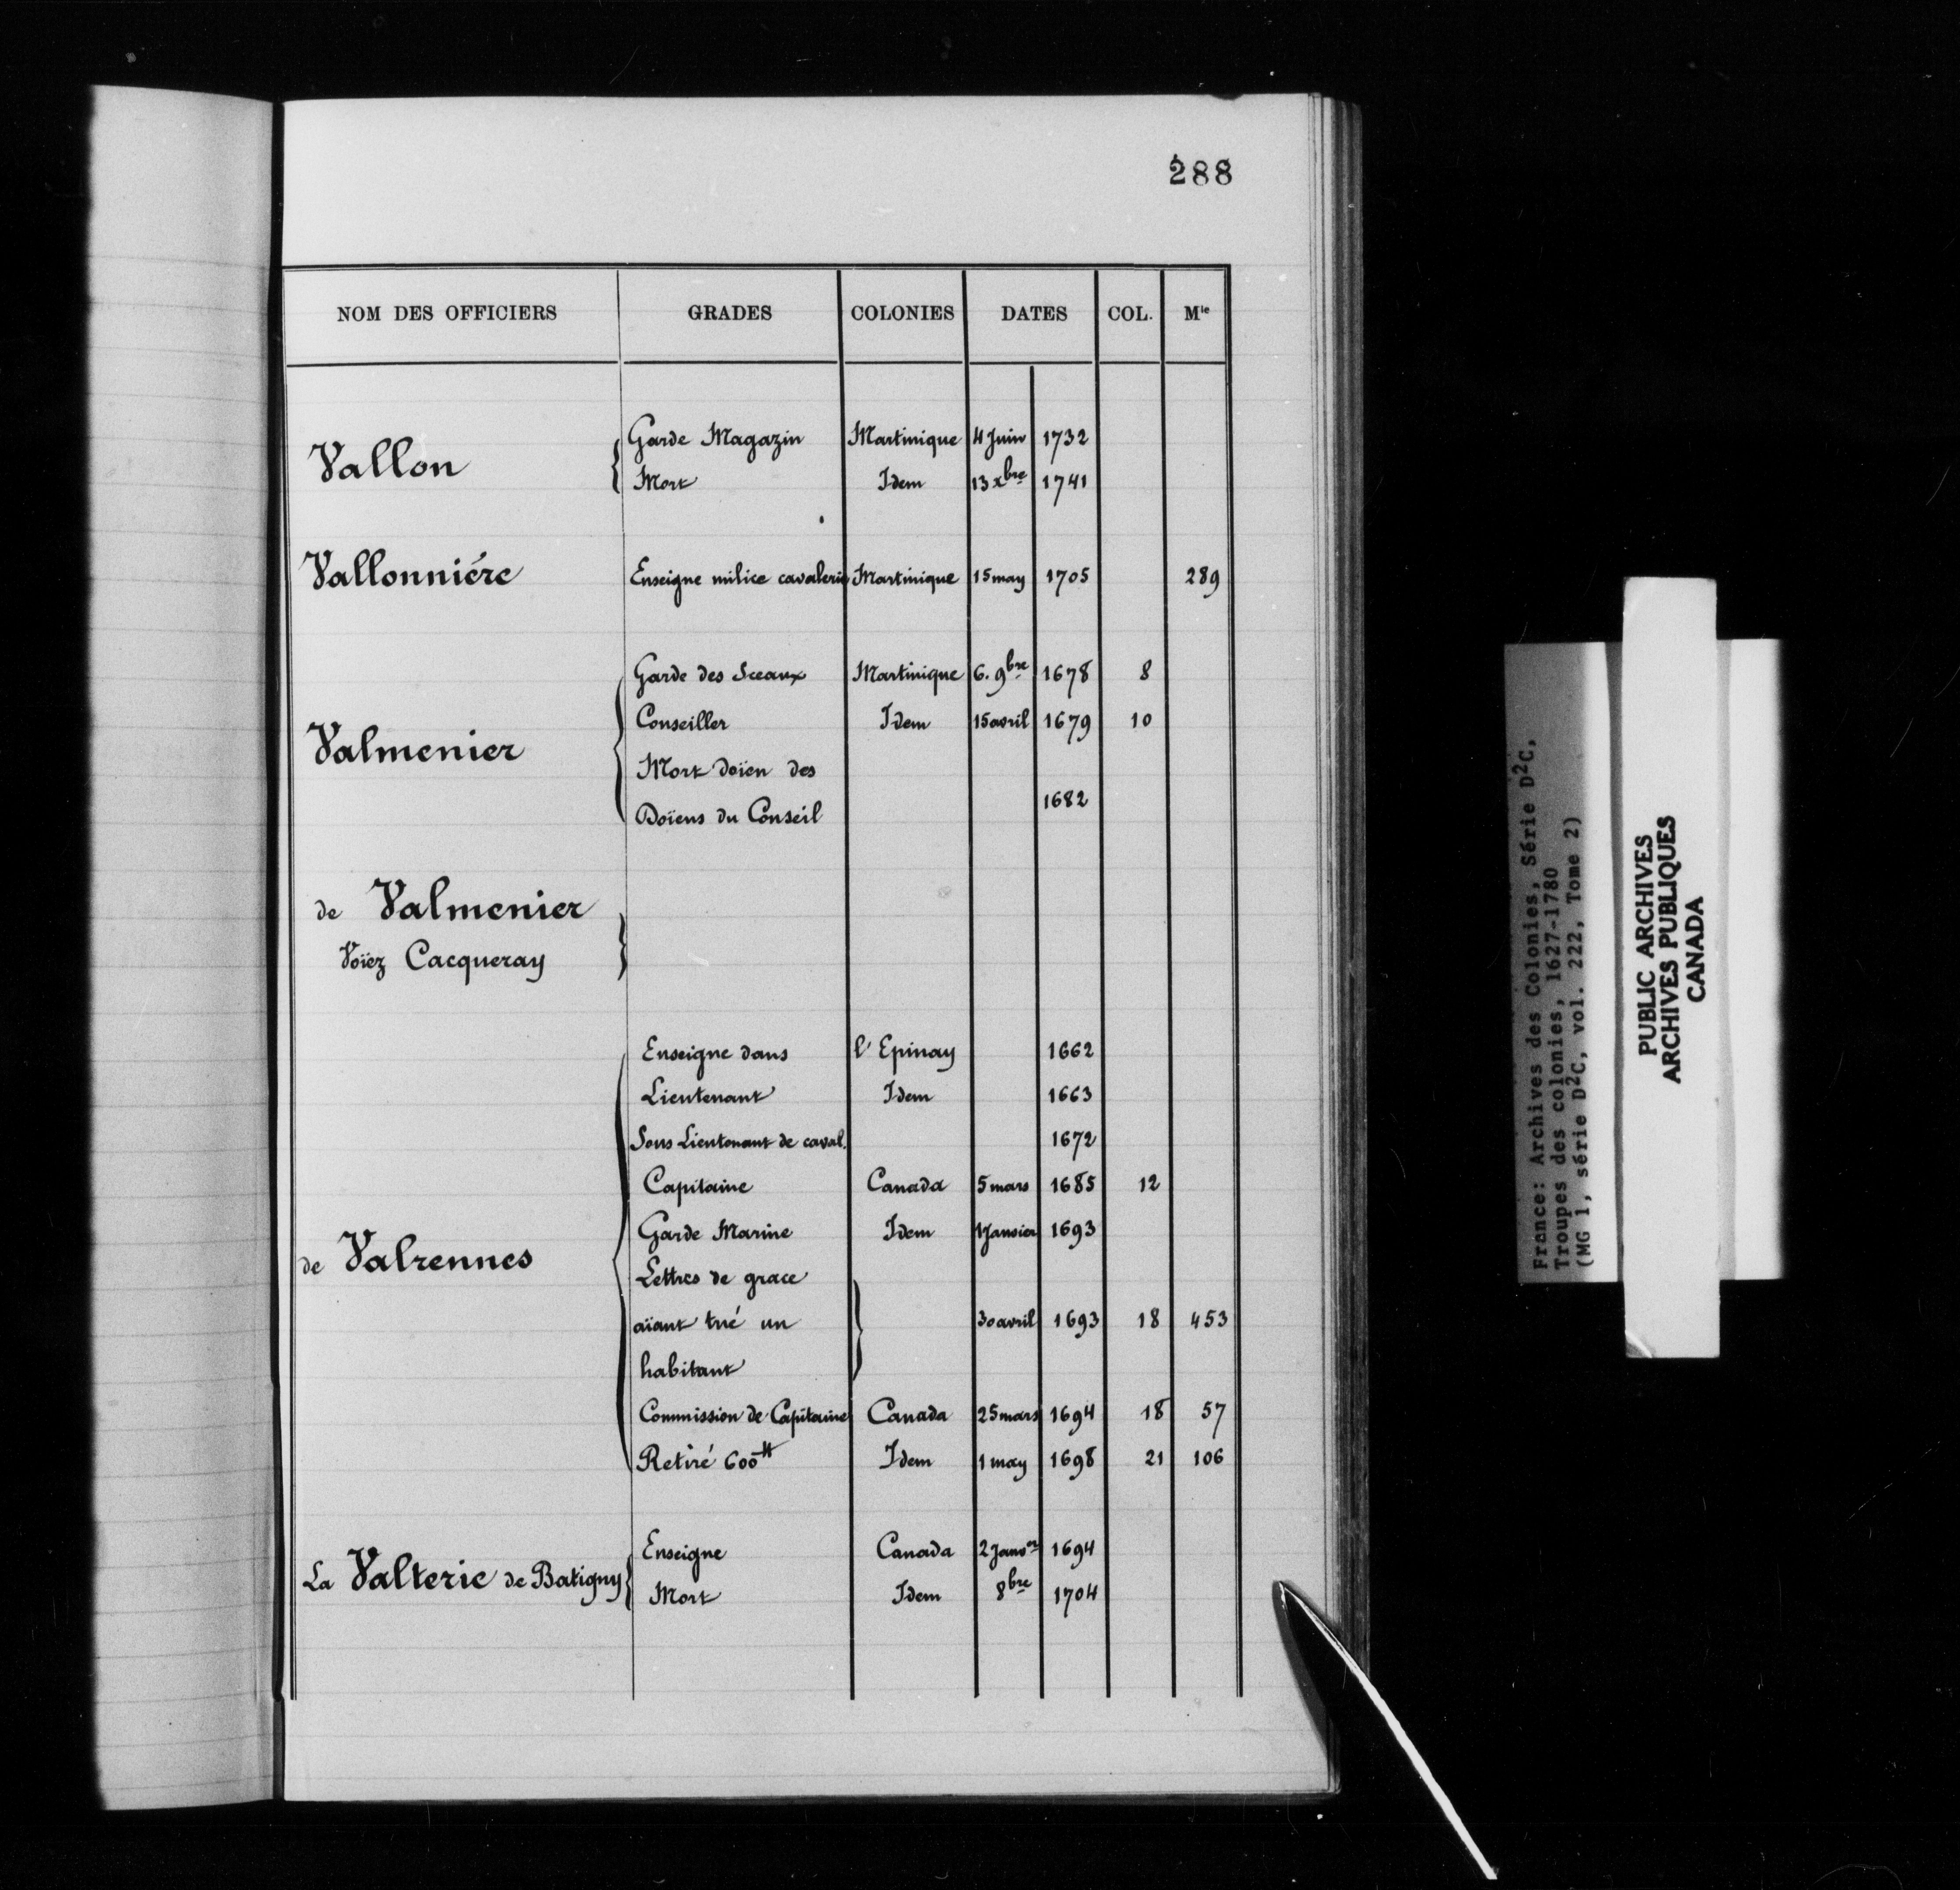 288
NOM DES OFFICIERS GRADES COLONIES DATES COL. Mle
Vallon Garde Magazin Martinique 4 Juin 1732
Mort Idem 13 xbre 1741
Vallonniére Enseigne milice cavalerie Martinique 15 may 1705 289
Valmenier Garde des Sceaux Martinique 6. 9bre 1678 8
Conseiller Idem 15 avril 1679 10
Mort doïen des
Doïens du Conseil 1682
de Valmenier
Voïez Cacqueray
de Valrennes Enseigne dans l'Epinay 1662
Lieutenant Idem 1663
Sous Lieutenant de caval. 1672
Capitaine Canada 5 mars 1685 12
Garde Marine Idem 1 Janvier 1693
Lettres de grace
aïant tué un 30 avril 1693 18 453
habitant
Commission de Capitaine Canada 25 mars 1694 18 57
Retiré 600tt Idem 1 may 1698 21 106
La Valterie de Batigny Enseigne Canada 2 Janver 1694
Mort Idem 8bre 1704
France: Archives des Colonies, Série D2C,
Troupes des colonies, 1627-1780
(MG 1, série D2C, vol. 222, Tome 2)
PUBLIC ARCHIVES
ARCHIVES PUBLIQUES
CANADA